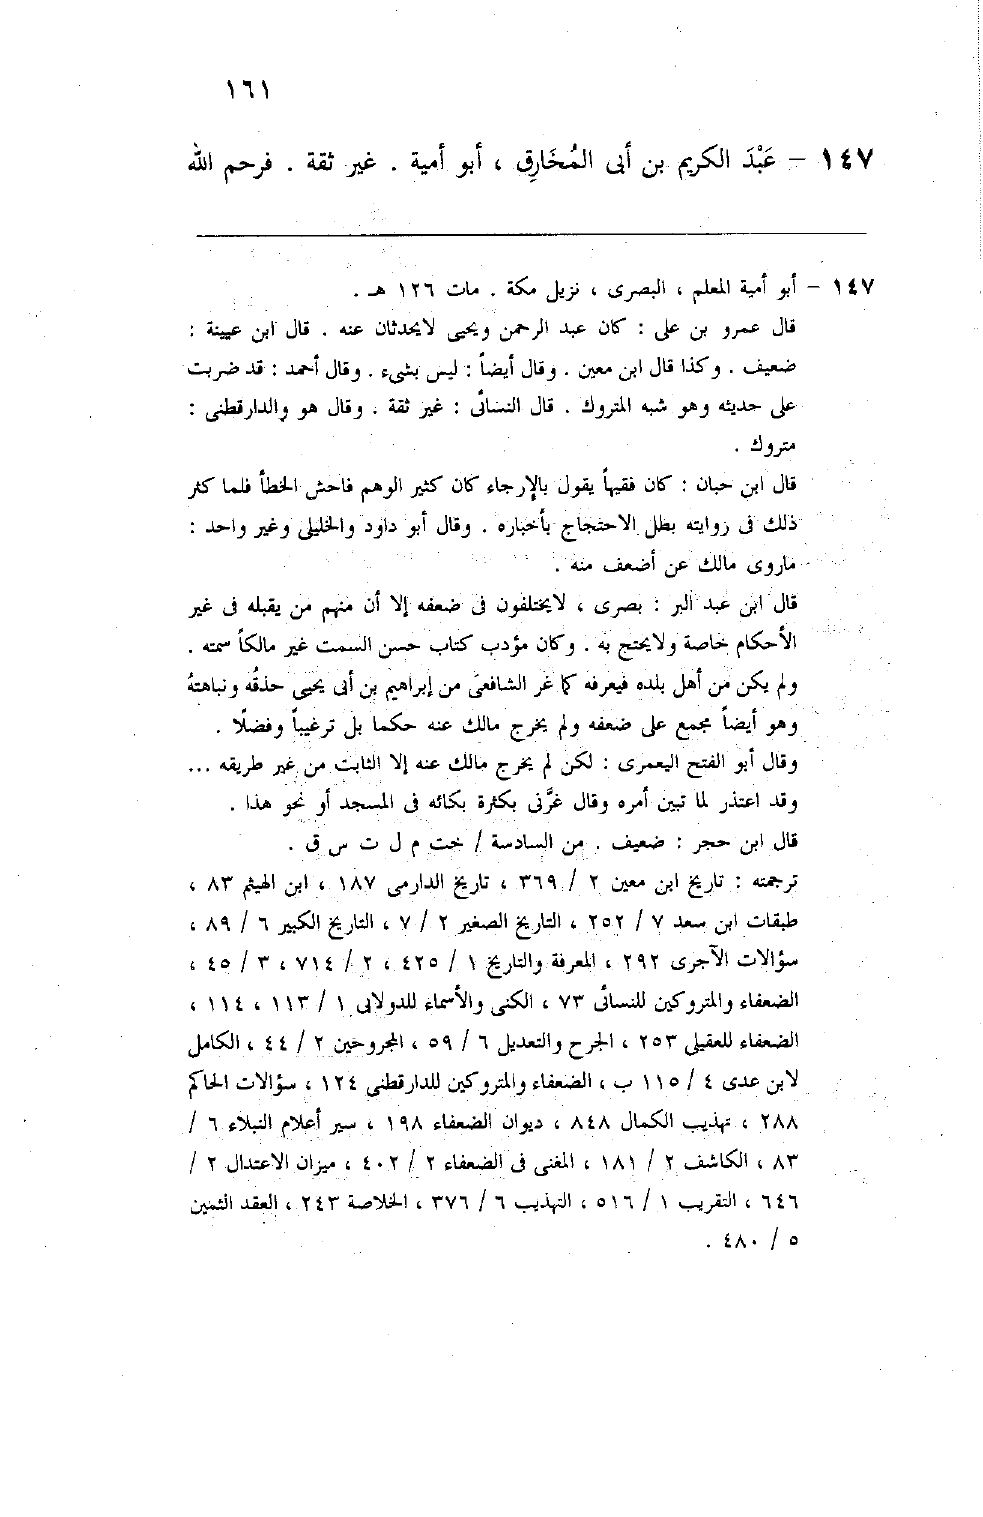 ١٦١
١٤٧ – عَبْدَ الكريم بن أبى المُخَارِق ، أبو أمية . غير ثقة . فرحم الله
١٤٧ – أبو أمية المعلم ، البصرى ، نزيل مكة . مات ١٢٦ هـ .
قال عمرو بن على : كان عبد الرحمن ويحيى لايحدثان عنه . قال ابن عيينة :
ضعيف . وكذا قال ابن معين . وقال أيضاً : ليس بشىء . وقال أحمد : قد ضربت
على حديثه وهو شبه المتروك . قال النسائى : غير ثقة . وقال هو والدارقطنى :
متروك .
قال ابن حبان : كان فقيهاً يقول بالإرجاء كان كثير الوهم فاحش الخطأ فلما كثر
ذلك فى روايته بطل الاحتجاج بأخباره . وقال أبو داود والخليلى وغير واحد :
ماروى مالك عن أضعف منه .
قال ابن عبد البر : بصرى ، لايختلفون فى ضعفه إلا أن منهم من يقبله فى غير
الأحكام خاصة ولايحتج به . وكان مؤدب كتاب حسن السمت غير مالكاً سمته .
ولم يكن من أهل بلده فيعرفه كما غر الشافعىَ من إبراهيم بن أبى يحيى حذقُه ونباهتهُ
وهو أيضاً مجمع على ضعفه ولم يخرج مالك عنه حكما بل ترغيباً وفضلًا .
وقال أبو الفتح اليعمرى : لكن لم يخرج مالك عنه إلا الثابت من غير طريقه ...
وقد اعتذر لما تبين أمره وقال غرَّنى بكثرة بكائه فى المسجد أو نحو هذا .
قال ابن حجر : ضعيف . من السادسة / خت م ل ت س ق .
ترجمته : تاريخ ابن معين ٢ / ٣٦٩ ، تاريخ الدارمى ١٨٧ ، ابن الهيثم ٨٣ ،
طبقات ابن سعد ٧ / ٢٥٢ ، التاريخ الصغير ٢ / ٧ ، التاريخ الكبير ٦ / ٨٩ ،
سؤالات الآجرى ٢٩٢ ، المعرفة والتاريخ ١ / ٤٢٥ ، ٢ / ٧١٤ ، ٣ / ٤٥ ،
الضعفاء والمتروكين للنسائى ٧٣ ، الكنى والأسماء للدولابى ١ / ١١٣ ، ١١٤ ،
الضعفاء للعقيلى ٢٥٣ ، الجرح والتعديل ٦ / ٥٩ ، المجروحين ٢ / ٤٤ ، الكامل
لابن عدى ٤ / ١١٥ ب ، الضعفاء والمتروكين للدارقطنى ١٢٤ ، سؤالات الحاكم
٢٨٨ ، تهذيب الكمال ٨٤٨ ، ديوان الضعفاء ١٩٨ ، سير أعلام النبلاء ٦ /
٨٣ ، الكاشف ٢ / ١٨١ ، المغنى فى الضعفاء ٢ / ٤٠٢ ، ميزان الاعتدال ٢ /
٦٤٦ ، التقريب ١ / ٥١٦ ، التهذيب ٦ / ٣٧٦ ، الخلاصة ٢٤٣ ، العقد الثمين
٥ / ٤٨٠ .